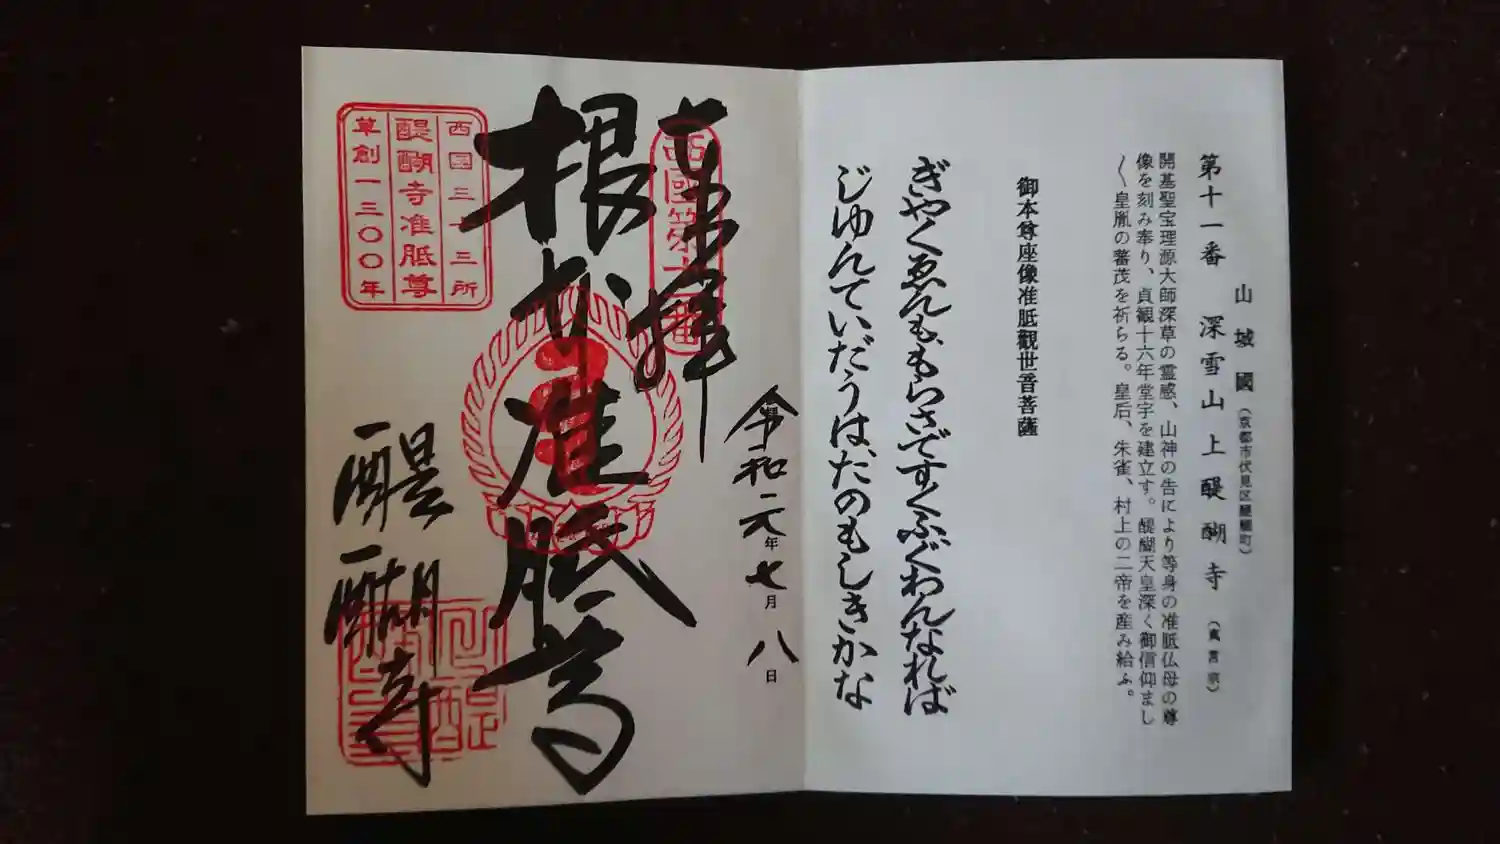 山城國(京都市伏見区醍醐町)
第十一番 深雪山上醍醐寺(真言宗)
開基聖宝理源大師深草の霊感、山神の告により等身の准胝仏母の尊
像を刻み奉り、貞観十六年堂宇を建立す。醍醐天皇深く御信仰まし
〱皇胤の蕃茂を祈らる。皇后、朱雀、村上の二帝を産み給ふ。
御本尊座像准胝觀世音菩薩
ぎやくゑんももらさですくふぐわんなれば
じゆんていだうはたのもしきかな
令和元年七月八日
奉拝
西國第十一番
根本准胝尊
醍醐寺
西国三十三所
醍醐寺准胝尊
草創一三〇〇年